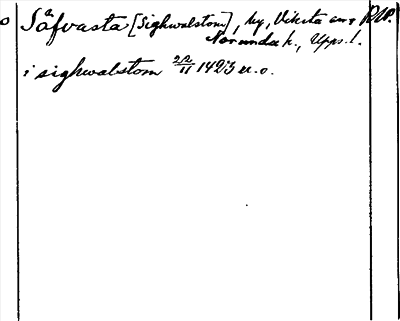 o Säfvasta [Sighwalstom], by, Viksta sn, RUP.
Norunda h., Upps. l.
i sighwalstom 22/11 1423 u. o.